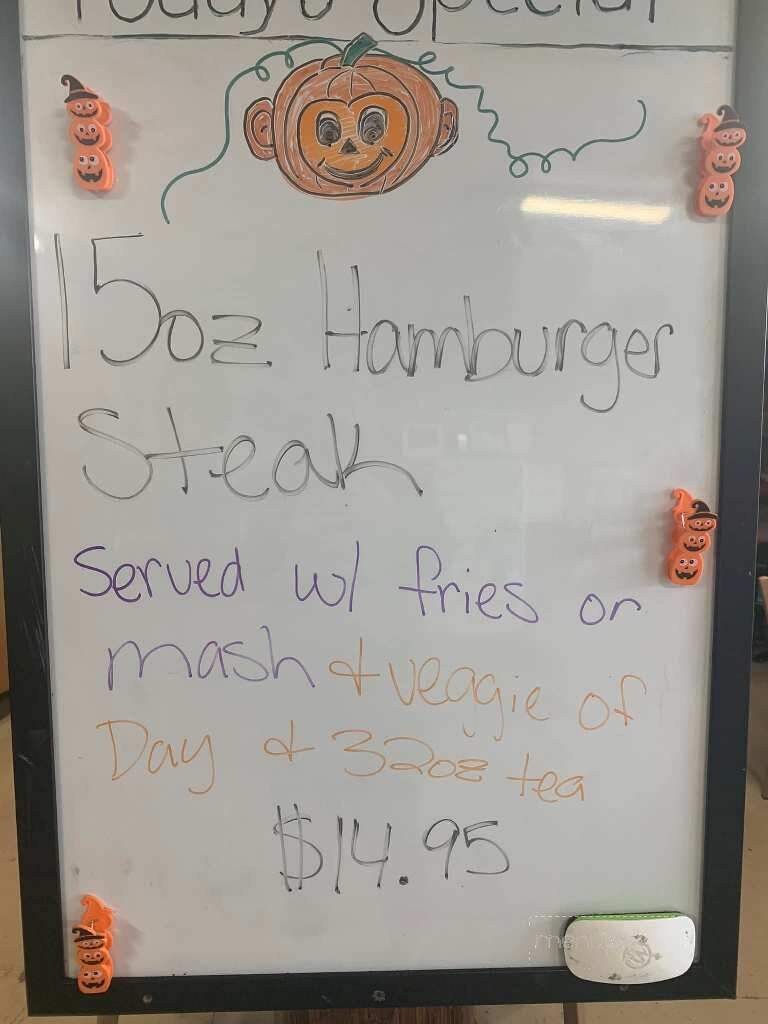 Today's Special
15oz Hamburger
Steak
Served w/ fries or
mash & veggie of
Day & 32oz tea
$14.95